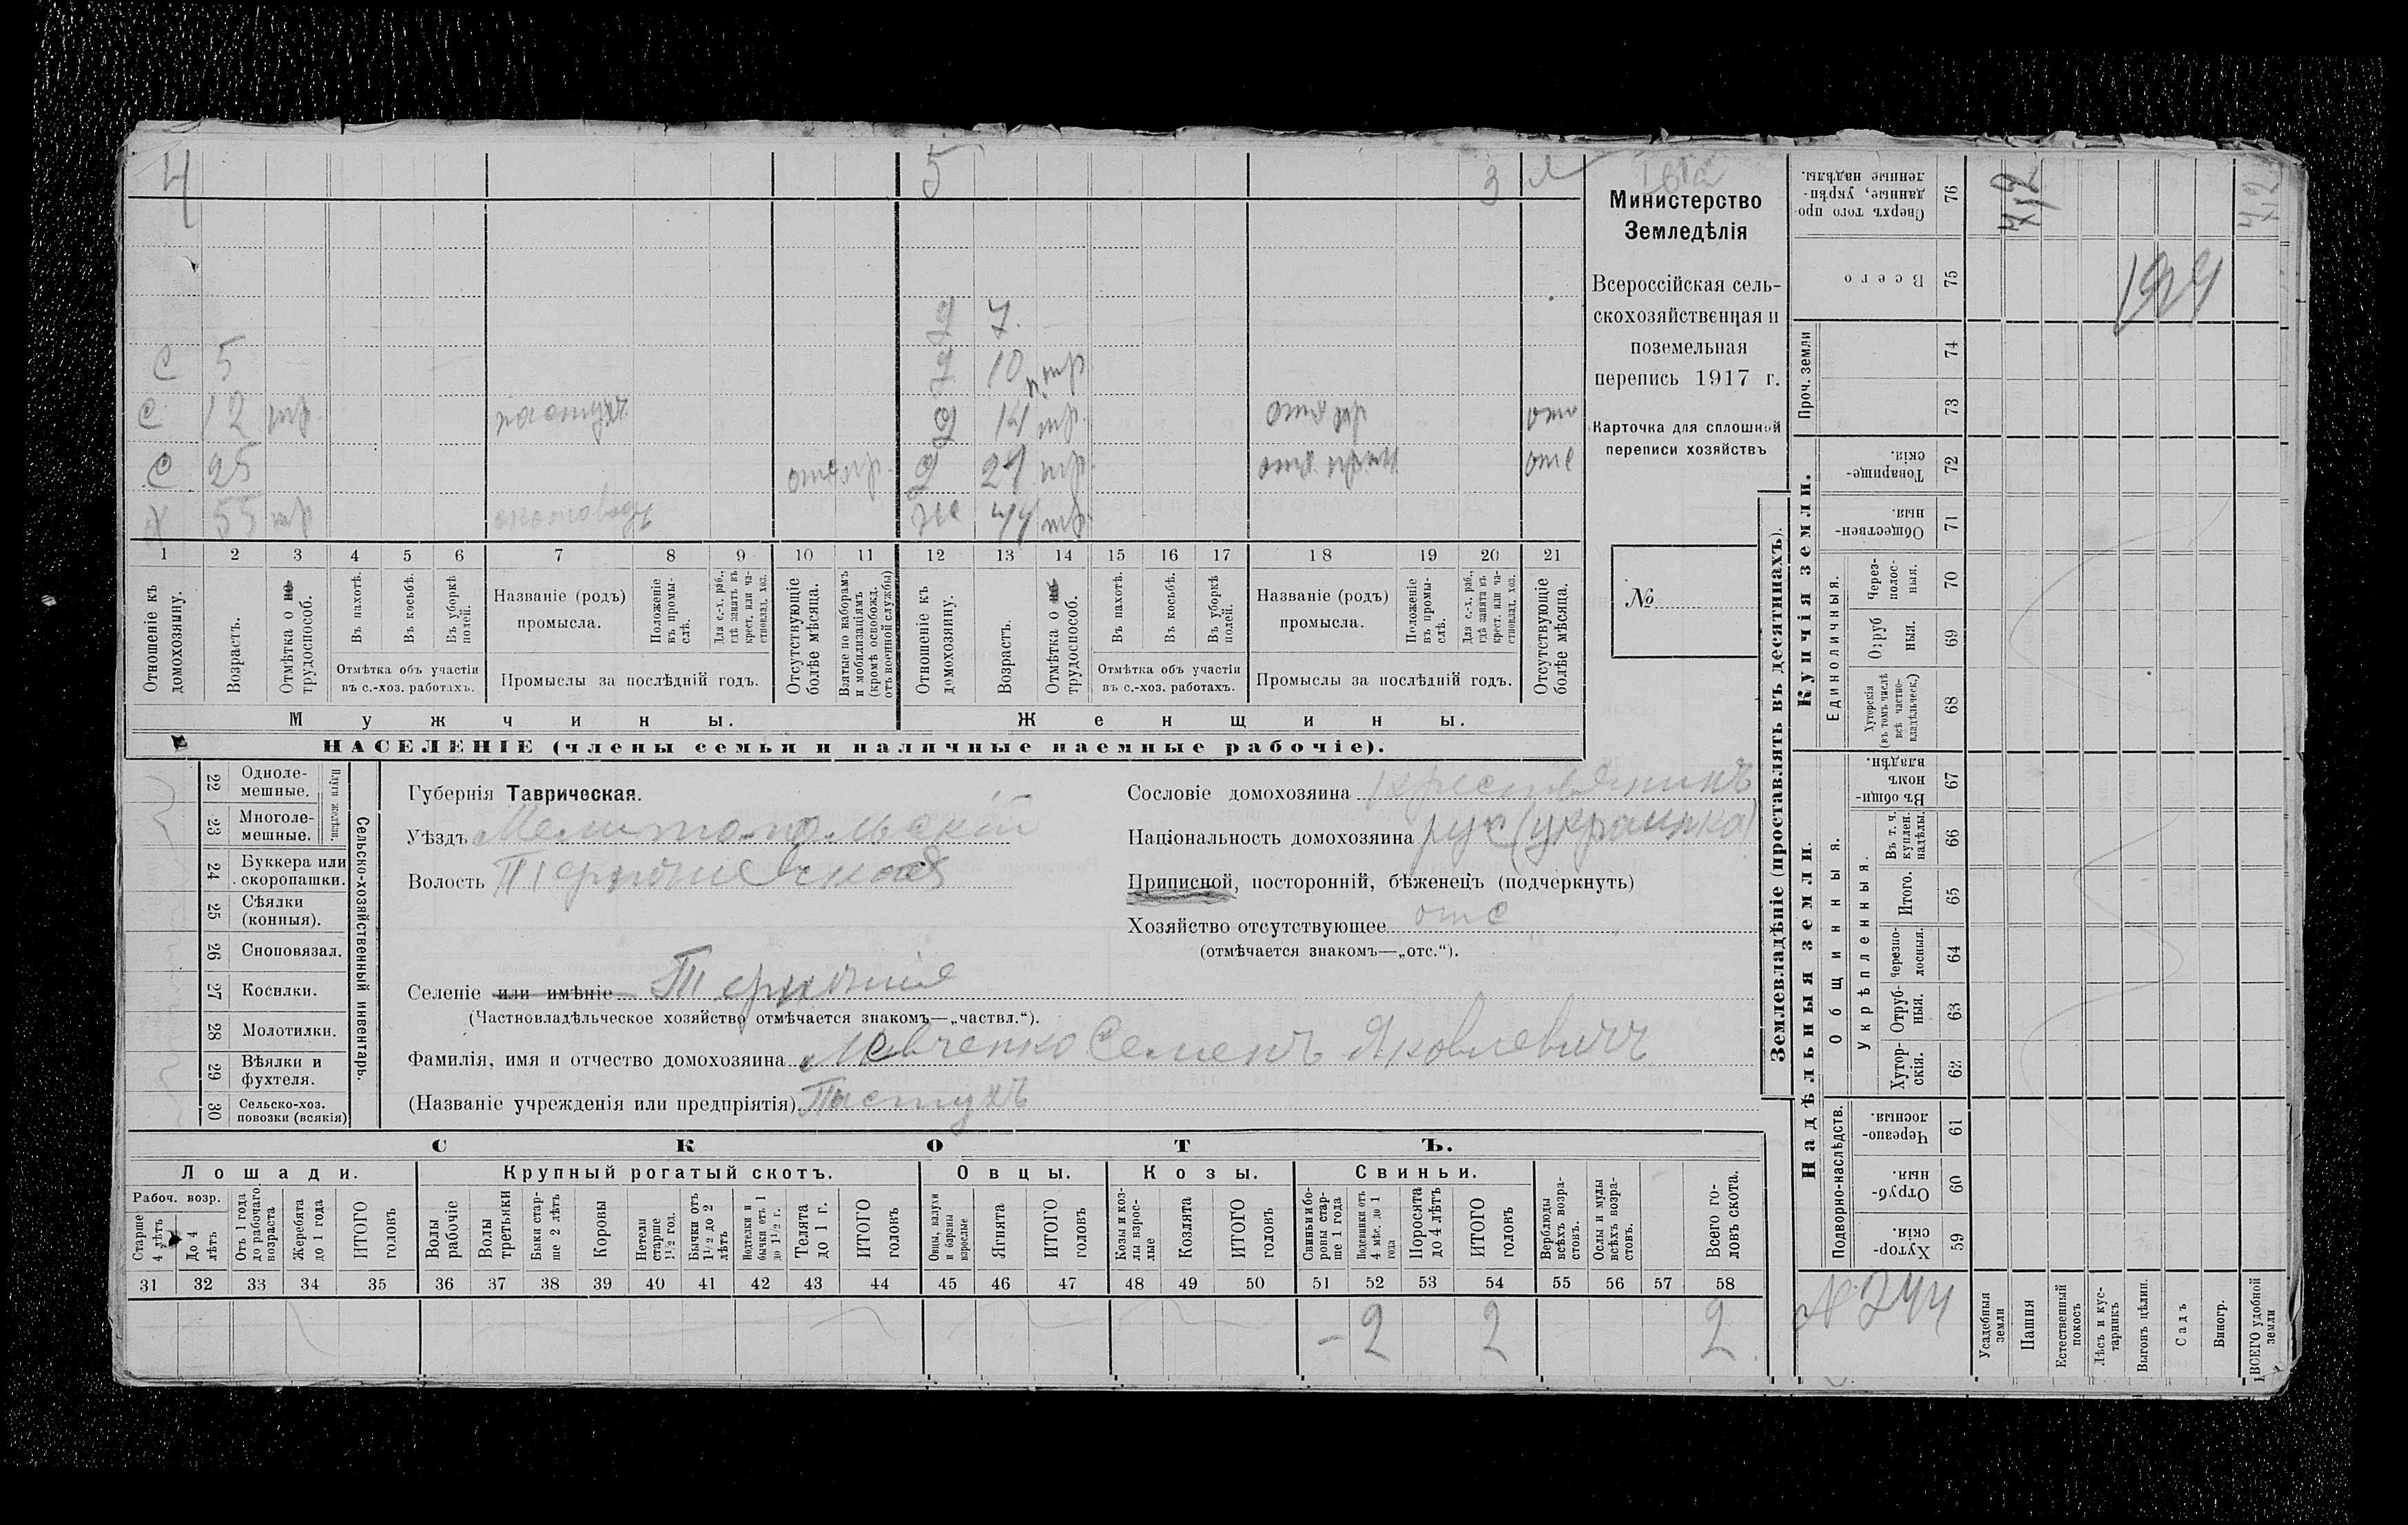 4
5
3
Министерство
Земледѣлія
Всероссійская сель-
скохозяйственная и
поземельная
перепись 1917 г.
Карточка для сплошной
переписи хозяйствъ
№
д 7.
с 5
д 10 н тр.
с 12 тр. пастухъ
д 14 тр.
отс
с 25
д 24 тр.
отс
х 55 тр
же 44 тр.
1 2 3 4 5 6 7 8 9 10 11 12 13 14 15 16 17 18 19 20 21
Отношеніе къ домохозяину.
Возрастъ.
Отмѣтка о не трудоспособ.
Въ пахотѣ.
Въ косьбѣ.
Въ уборкѣ полей.
Отмѣтка объ участіи въ с.-хоз. работахъ.
Названіе (родъ) промысла.
Положеніе въ промы-слѣ.
Для с.-х. раб., гдѣ занятъ въ крест. или ча-стновлад. хоз.
Промыслы за послѣдній годъ.
Отсутствующіе болѣе мѣсяца.
Взятые по наборамъ и мобилизаціямъ (кромѣ освобожд. отъ военной службы)
Отношеніе къ домохозяину.
Возрастъ.
Отмѣтка о не трудоспособ.
Въ пахотѣ.
Въ косьбѣ.
Въ уборкѣ полей.
Отмѣтка объ участіи въ с.-хоз. работахъ.
Названіе (родъ) промысла.
Положеніе въ промы-слѣ.
Для с.-х. раб., гдѣ занята въ крест. или ча-стновлад. хоз.
Промыслы за послѣдній годъ.
Отсутствующіе болѣе мѣсяца.
Мужчины.
Женщины.
НАСЕЛЕНІЕ (члены семьи и наличные наемные рабочіе).
22 Одноле-мешные.
23 Многоле-мешные.
Плуги желѣзн.
24 Буккера или скоропашки.
25 Сѣялки (конныя).
26 Сноповязал.
27 Косилки.
28 Молотилки.
29 Вѣялки и фухтеля.
30 Сельско-хоз. повозки (всякія)
Сельско-хозяйственный инвентарь.
Губернія Таврическая.
Уѣздъ Мелитопольскій
Волость
Сословіе домохозяина крестьянинъ
Національность домохозяина рус (украинка)
Приписной, посторонній, бѣженецъ (подчеркнуть)
Хозяйство отсутствующее отс
(отмѣчается знакомъ—„отс.“).
Селеніе или имѣніе
(Частновладѣльческое хозяйство отмѣчается знакомъ—„частвл.“).
Фамилія, имя и отчество домохозяина Семенъ Яковлевичъ
(Названіе учрежденія или предпріятія) Пастухъ
СКОТЪ.
Лошади.
Крупный рогатый скотъ.
Овцы.
Козы.
Свиньи.
Рабоч. возр.
Старше 4 лѣтъ
До 4 лѣтъ
Отъ 1 года до рабочаго возраста
Жеребята до 1 года
ИТОГО головъ
Волы рабочіе
Волы третьяки
Быки стар-ше 2 лѣтъ
Коровы
Нетели старше 1½ год.
Бычки отъ 1½ до 2 лѣтъ
Подтелки и бычки отъ 1 до 1½ г.
Телята до 1 г.
ИТОГО головъ
Овцы, валухи и бараны взрослые
Ягнята
ИТОГО головъ
Козы и коз-лы взрос-лые
Козлята
ИТОГО головъ
Свиньи и бо-ровы стар-ше 1 года
Подсвинки отъ 4 мѣс. до 1 года
Поросята до 4 лѣтъ
ИТОГО головъ
Верблюды всѣхъ возра-стовъ.
Ослы и мулы всѣхъ возра-стовъ.
Всего го-ловъ скота.
31 32 33 34 35 36 37 38 39 40 41 42 43 44 45 46 47 48 49 50 51 52 53 54 55 56 57 58
– 2 2 2
Землевладѣніе (проставлять въ десятинахъ).
Сверхъ того про-данные, укрѣп-ленные надѣлы. 76
Всего 75
74
Проч. земли
73
Купчія земли.
Товарище-скія. 72
Обществен-ныя. 71
Единоличныя.
Через-полос-ныя. 70
Отруб ныя. 69
Хуторскія (въ томъ числѣ всѣ частно-владѣльческ.) 68
Надѣльныя земли.
Общинныя.
Въ общи-номъ владѣн. 67
Укрѣпленныя.
Въ т. ч. куплен. надѣлы. 66
Итого. 65
Черезпо-лосныя. 64
Отруб-ныя. 63
Хутор-скія. 62
Подворно-наслѣдств.
Черезпо-лосныя. 61
Отруб-ныя. 60
Хутор-скія. 59
№ 244
Усадебныя земли
Пашня
Естественный покосъ
Лѣсъ и кус-тарникъ
Выгонъ цѣлин.
Садъ
Виногр.
ВСЕГО удобной земли